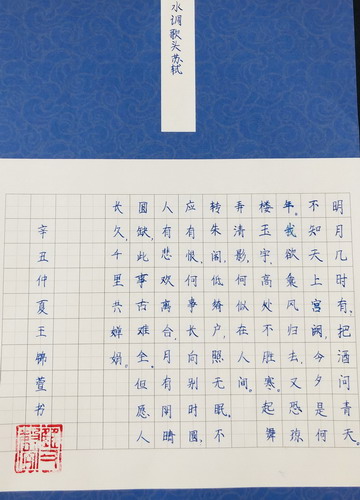 水调歌头苏轼
明月几时有,把酒问青天
不知天上宫阙,今夕是何
年。我欲乘风归去,又恐琼
楼玉宇,高处不胜寒。起舞
弄清影,何似在人间。
转朱阁,低绮户,照无眠。不
应有恨,何事长向别时圆。
人有悲欢离合,月有阴晴
圆缺,此事古难全。但愿人
长久,千里共婵娟。
辛丑仲夏王锦萱书